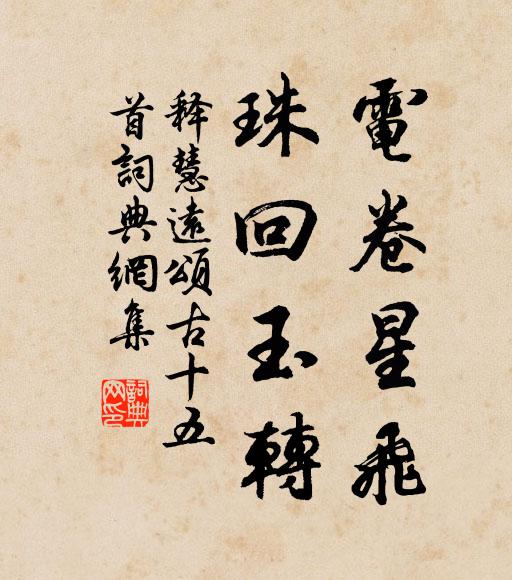 電卷星飛
珠回玉轉
释慧遠頌古十五
首詞典網集
詞典网印